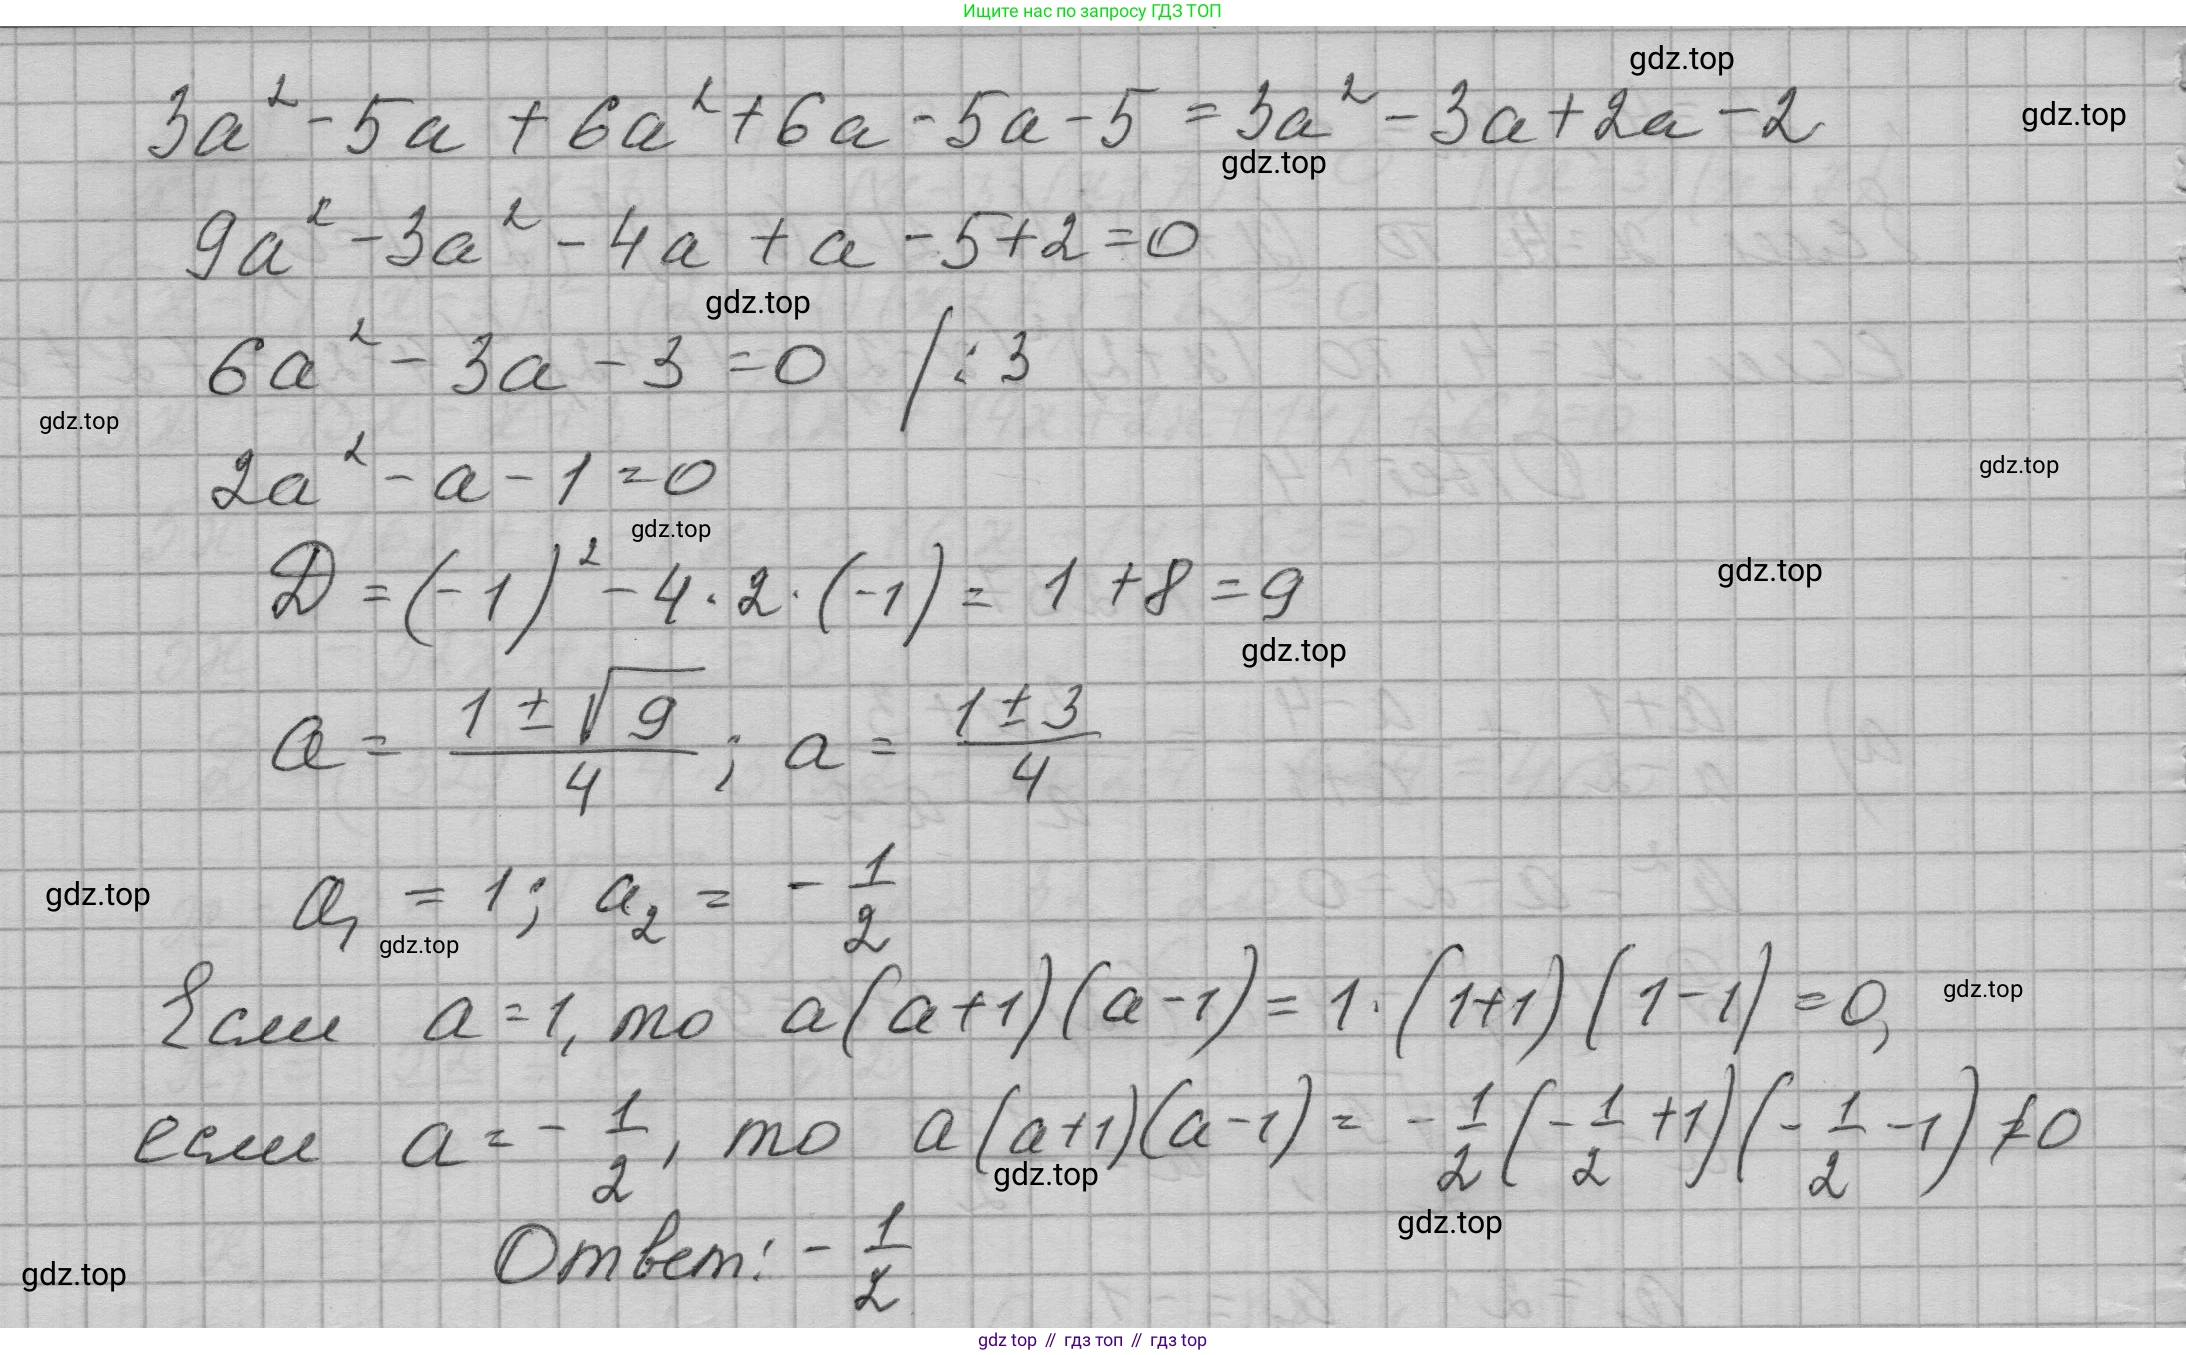 Ищите нас по запросу ГДЗ ТОП
gdz.top
3a² - 5a + 6a² + 6a - 5a - 5 = 3a² - 3a + 2a - 2
gdz.top
gdz.top
9a² - 3a² - 4a + a - 5 + 2 = 0
gdz.top
6a² - 3a - 3 = 0 / : 3
gdz.top
2a² - a - 1 = 0
gdz.top
gdz.top
D = (-1)² - 4 · 2 · (-1) = 1 + 8 = 9
gdz.top
gdz.top
a = (1 ± √9)/4 ; a = (1 ± 3)/4
a₁ = 1; a₂ = - 1/2
gdz.top
gdz.top
Если a = 1, то a(a+1)(a-1) = 1·(1+1)(1-1) = 0,
gdz.top
если a = - 1/2, то a(a+1)(a-1) = - 1/2 (- 1/2 + 1)(- 1/2 - 1) ≠ 0
gdz.top
gdz.top
Ответ: - 1/2
gdz.top
gdz top // гдз топ // гдз top